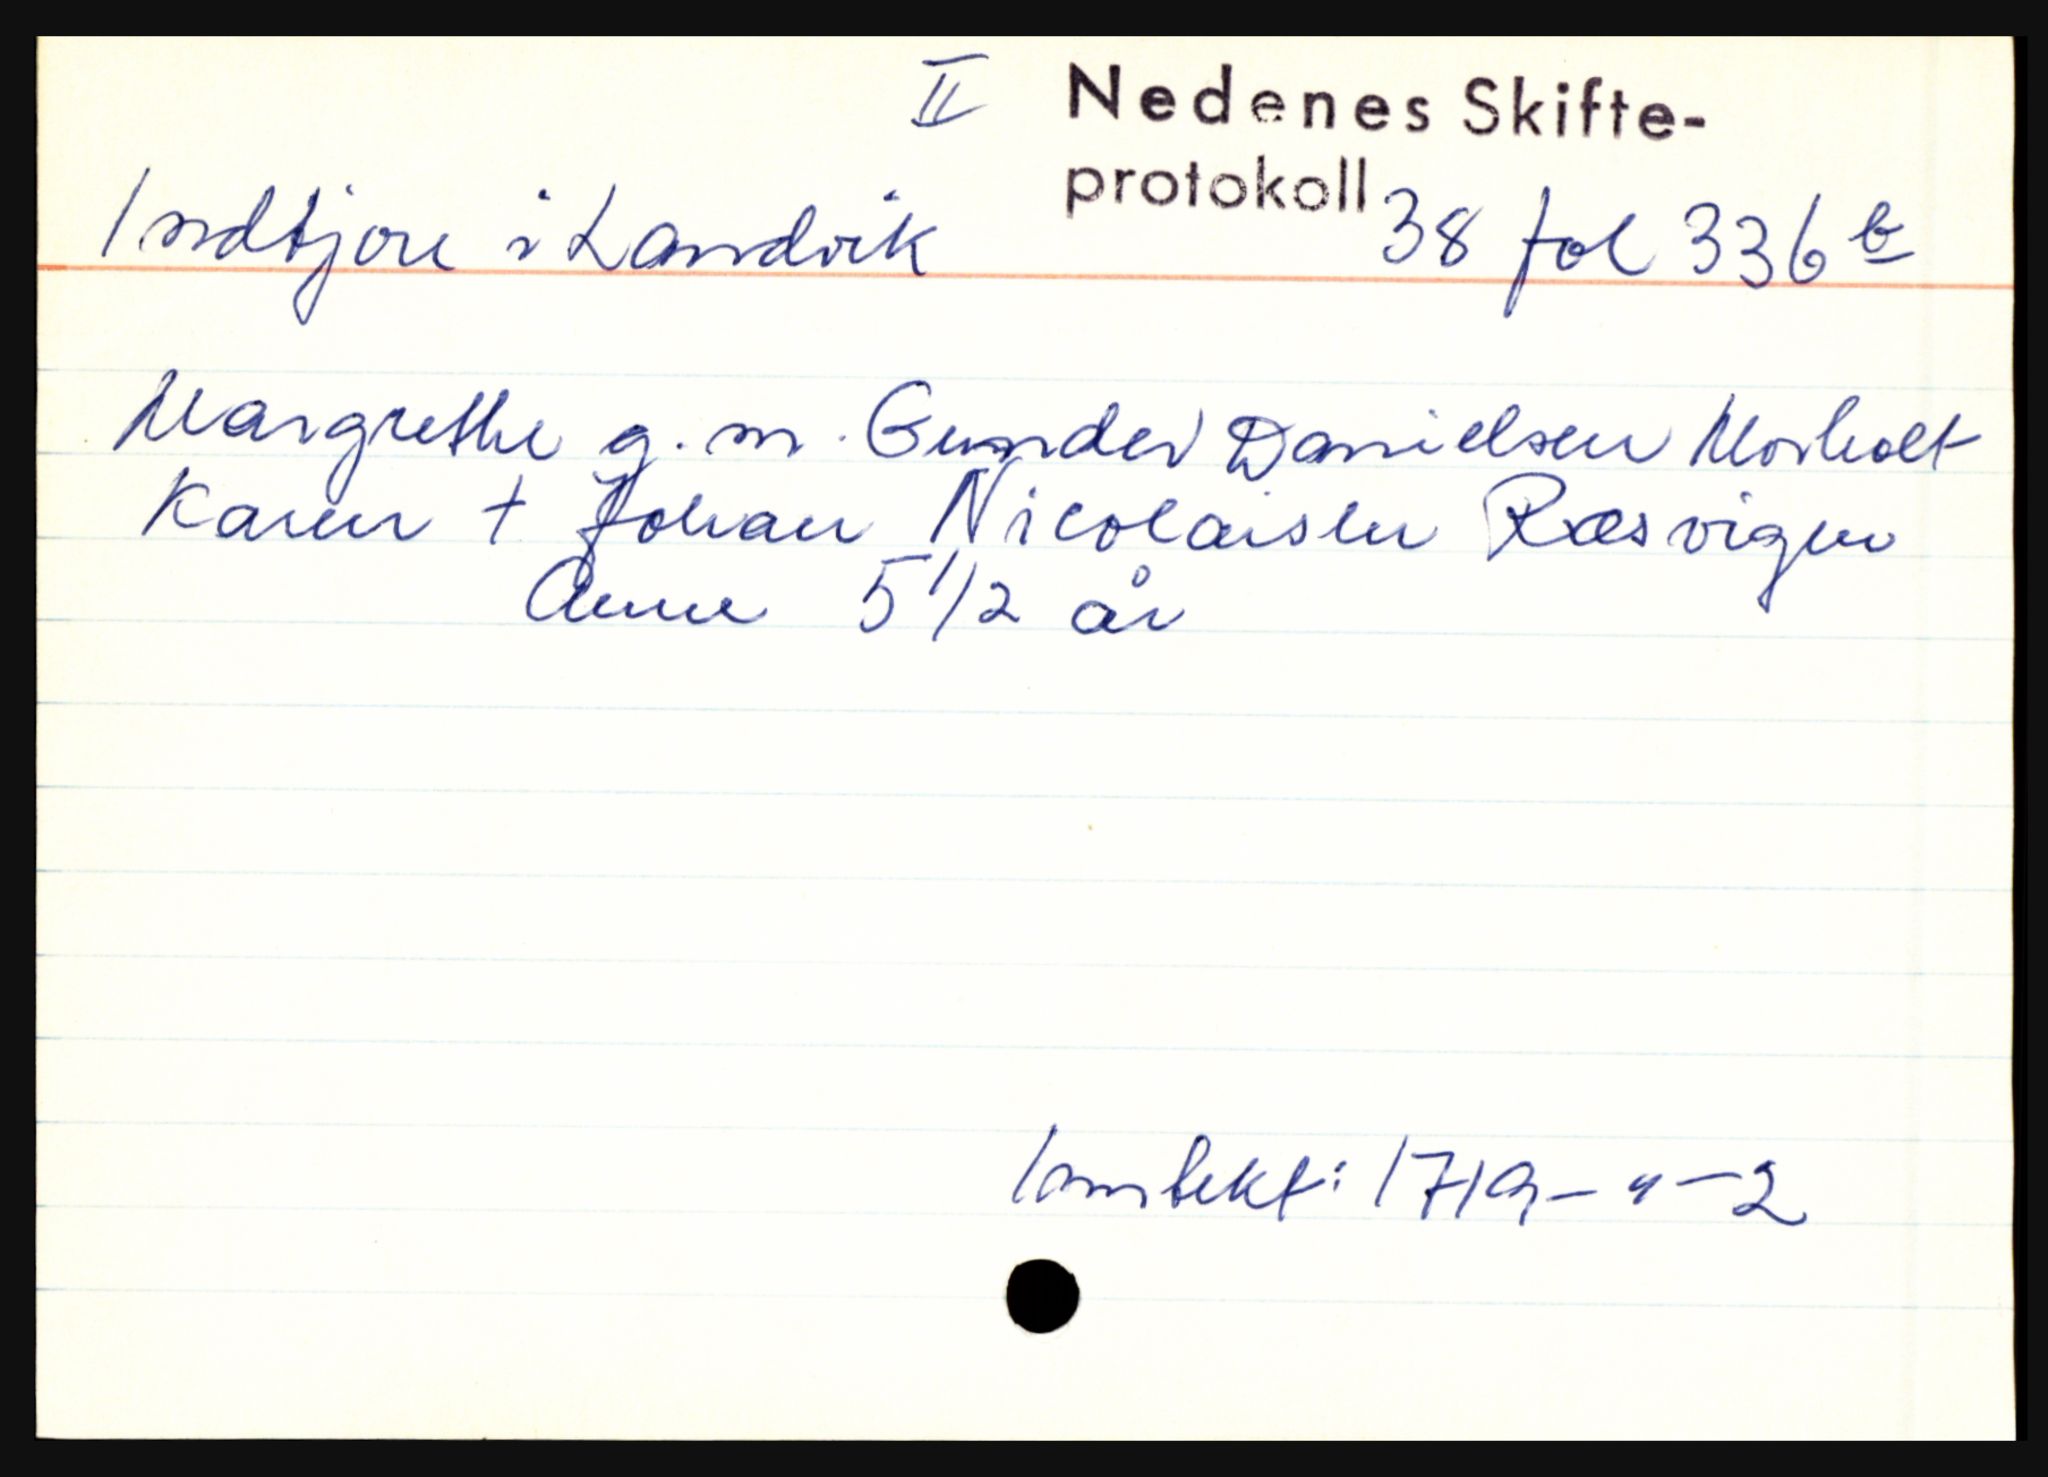 II Nedenes Skifte-
protokoll
Indtjore i Landvik 38 fol 336 b
Margrethe g. m. Gunder Danielsen Morholt
Karen + Johan Nicolaisen Ræsvigen
Anne 5 1/2 år
Inntekt: 1719 - " - 2